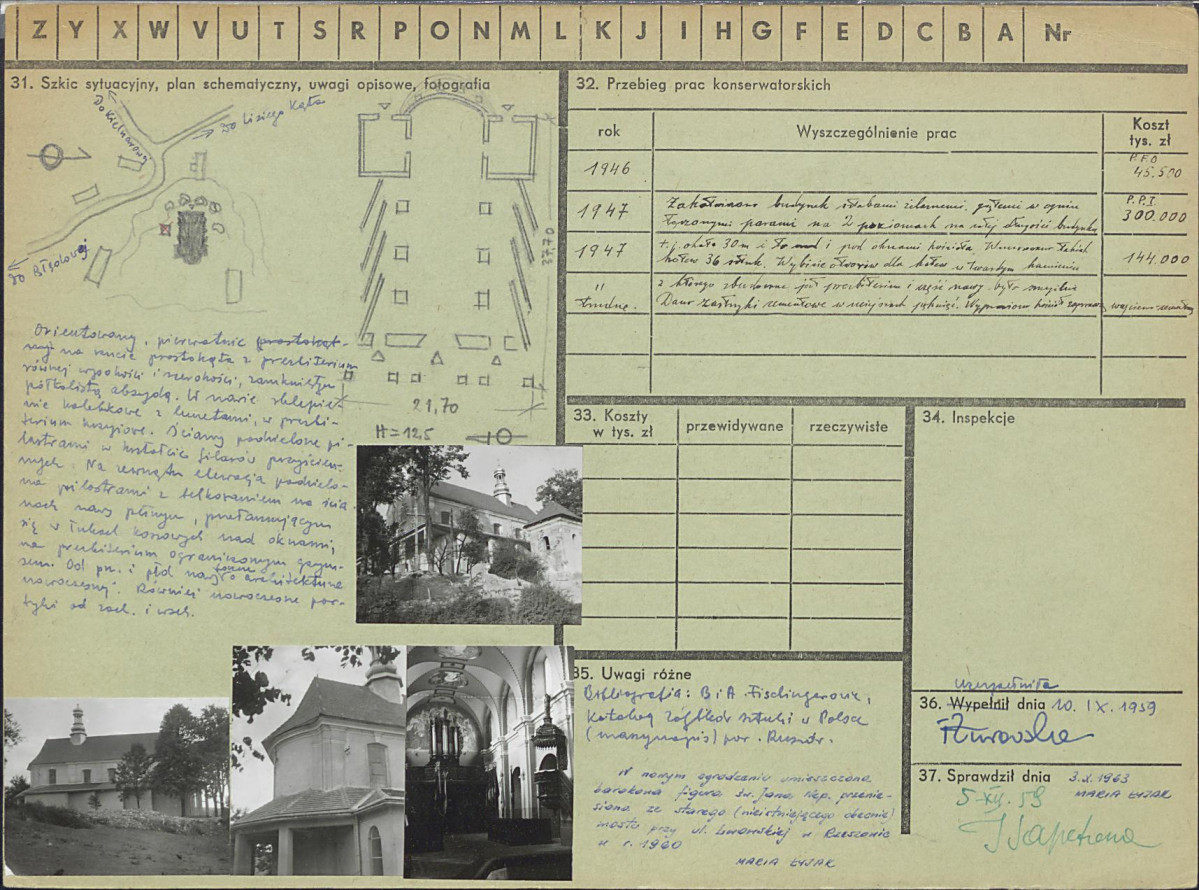 Z Y X W V U T S R P O N M L K J I H G F E D C B A Nr
31. Szkic sytuacyjny, plan schematyczny, uwagi opisowe, fotografia
Do Kielnarowy
Do Lisiego Kąta
Do Błędowej
37.70
21,70
H = 12,5
Orientowany, pierwotnie prostokąt-
ny na rzucie prostokąta z prezbiterium
równej wysokości i szerokości, zamknięty
półkolistą absydą. W nawie sklepie-
nie kolebkowe z lunetami, w prezbi-
terium krzyżowe. Ściany podzielone pi-
lastrami w kształcie filarów przyścien-
nych. Na zewnątrz elewacja podzielo-
na pilastrami z belkowaniem na ścia-
nach nawy płynnym, przełamującym
się w łukach koszowych nad oknami,
na prezbiterium ograniczonym gzym-
sem. Od pn. i płd nawy architektura
nowoczesny. Również nowoczesne por-
tyki od zach. i wsch.
32. Przebieg prac konserwatorskich
rok
Wyszczególnienie prac
Koszt
tys. zł
1946
45.500
1947
budynek parami na 2 poziomach na całej długości budynku
300.000
1947
t.j. około 30 m i pod oknami kościoła.
kotew 36 sztuk. Wybicie otworów dla kotew w twardym kamieniu
144.000
"
z którego zbudowane jest prezbiterium i część nawy było
trudne.
Dano zastrzyki cementowe w miejscach pęknięć.
33. Koszty
w tys. zł
przewidywane
rzeczywiste
34. Inspekcje
35. Uwagi różne
Bibliografia: B i A. Fischingerowie,
Katalog zabytków sztuki w Polsce
(manuskrypt) pow. Rzeszów.
W nowym ogrodzeniu umieszczono
barokową figurę św. Jana Nep. przenie-
sioną ze starego (nieistniejącego obecnie)
mostu przy ul. Lwowskiej w Rzeszowie
w r. 1960
MARIA ŁYŻAK
uzupełniła
36. Wypełnił dnia 10. IX. 1959
37. Sprawdził dnia 3.X.1963
MARIA ŁYŻAK
5-XII. 59